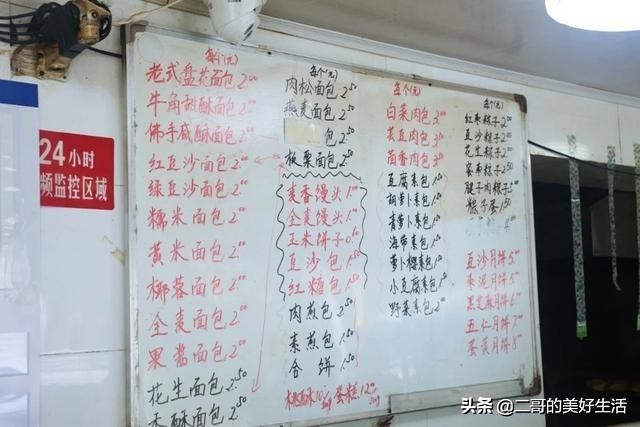 24小时
视频监控区域
每个(元)
老式盘花面包 2.00
牛角甜酥面包 2.00
佛手咸酥面包 2.00
红豆沙面包 2.00
绿豆沙面包 2.00
糯米面包 2.00
黄米面包 2.00
椰蓉面包 2.00
全麦面包 2.00
果酱面包 2.00
花生面包 2.50
香酥面包 2.50
每个(元)
肉松面包 2.50
燕麦面包 2.00
包 2.00
板栗面包 2.50
麦香馒头 1.00
全麦馒头 1.00
玉米饼子 0.60
豆沙包 1.50
红糖包 1.50
肉煎包 2.50
素煎包 1.50
合饼 1.50
桃酥10元/kg 蛋糕12.00
每个(元)
白菜肉包 3.00
芸豆肉包 3.00
茴香肉包 3.00
豆腐素包 1.50
胡萝卜包 1.50
青萝卜包 1.50
海带素包 1.50
萝卜樱素包 1.50
小豆腐素包 1.50
野菜素包 2.00
每个(元)
红枣粽子 2.00
豆沙粽子 2.00
花生粽子 2.00
蜜枣粽子 2.50
腱子肉粽 5.00
粽子蛋 1.50
豆沙月饼 5.00
枣泥月饼 5.00
黑芝麻月饼 6.00
五仁月饼 7.00
蛋黄月饼 8.00
头条 @二哥的美好生活